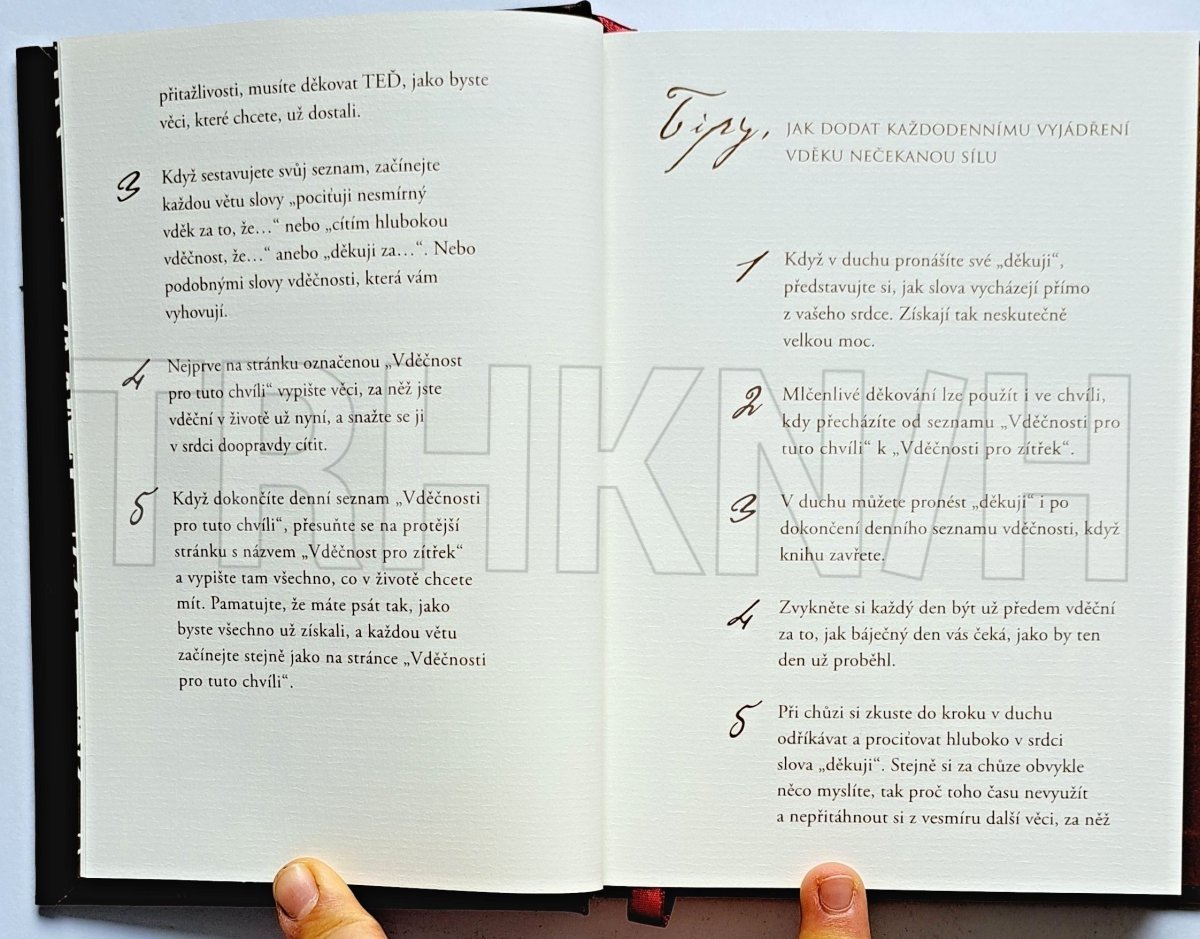 přitažlivosti, musíte děkovat TEĎ, jako byste
věci, které chcete, už dostali.
3 Když sestavujete svůj seznam, začínejte
každou větu slovy „pociťuji nesmírný
vděk za to, že…“ nebo „cítím hlubokou
vděčnost, že…“ anebo „děkuji za…“. Nebo
podobnými slovy vděčnosti, která vám
vyhovují.
4 Nejprve na stránku označenou „Vděčnost
pro tuto chvíli“ vypište věci, za něž jste
vděční v životě už nyní, a snažte se ji
v srdci doopravdy cítit.
5 Když dokončíte denní seznam „Vděčnosti
pro tuto chvíli“, přesuňte se na protější
stránku s názvem „Vděčnost pro zítřek“
a vypište tam všechno, co v životě chcete
mít. Pamatujte, že máte psát tak, jako
byste všechno už získali, a každou větu
začínejte stejně jako na stránce „Vděčnosti
pro tuto chvíli“.
Tipy, JAK DODAT KAŽDODENNÍMU VYJÁDŘENÍ
VDĚKU NEČEKANOU SÍLU
1 Když v duchu pronášíte své „děkuji“,
představujte si, jak slova vycházejí přímo
z vašeho srdce. Získají tak neskutečně
velkou moc.
2 Mlčenlivé děkování lze použít i ve chvíli,
kdy přecházíte od seznamu „Vděčnosti pro
tuto chvíli“ k „Vděčnosti pro zítřek“.
3 V duchu můžete pronést „děkuji“ i po
dokončení denního seznamu vděčnosti, když
knihu zavřete.
4 Zvykněte si každý den být už předem vděční
za to, jak báječný den vás čeká, jako by ten
den už proběhl.
5 Při chůzi si zkuste do kroku v duchu
odříkávat a prociťovat hluboko v srdci
slova „děkuji“. Stejně si za chůze obvykle
něco myslíte, tak proč toho času nevyužít
a nepřitáhnout si z vesmíru další věci, za něž
TRHKNIH